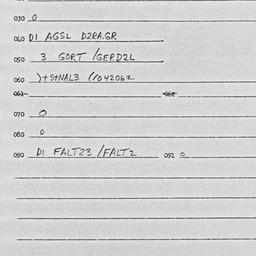 030 0
040 DI AGSL D2RA.GR
050 3 GORT /GERD2L
060 )+StNAL3 (1042062
061 062
070 0
080 0
090 DI FALT23/FALT2 091 0